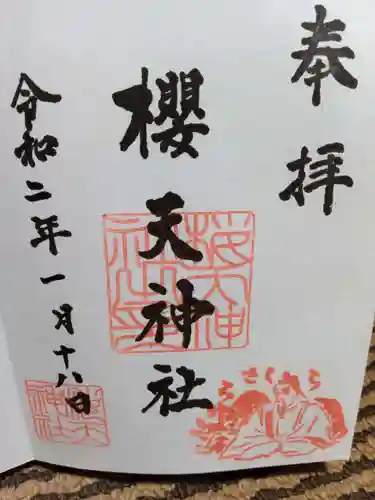 奉拝
櫻天神社
令和二年一月十八日
桜天神社之印
桜天神社
さくら